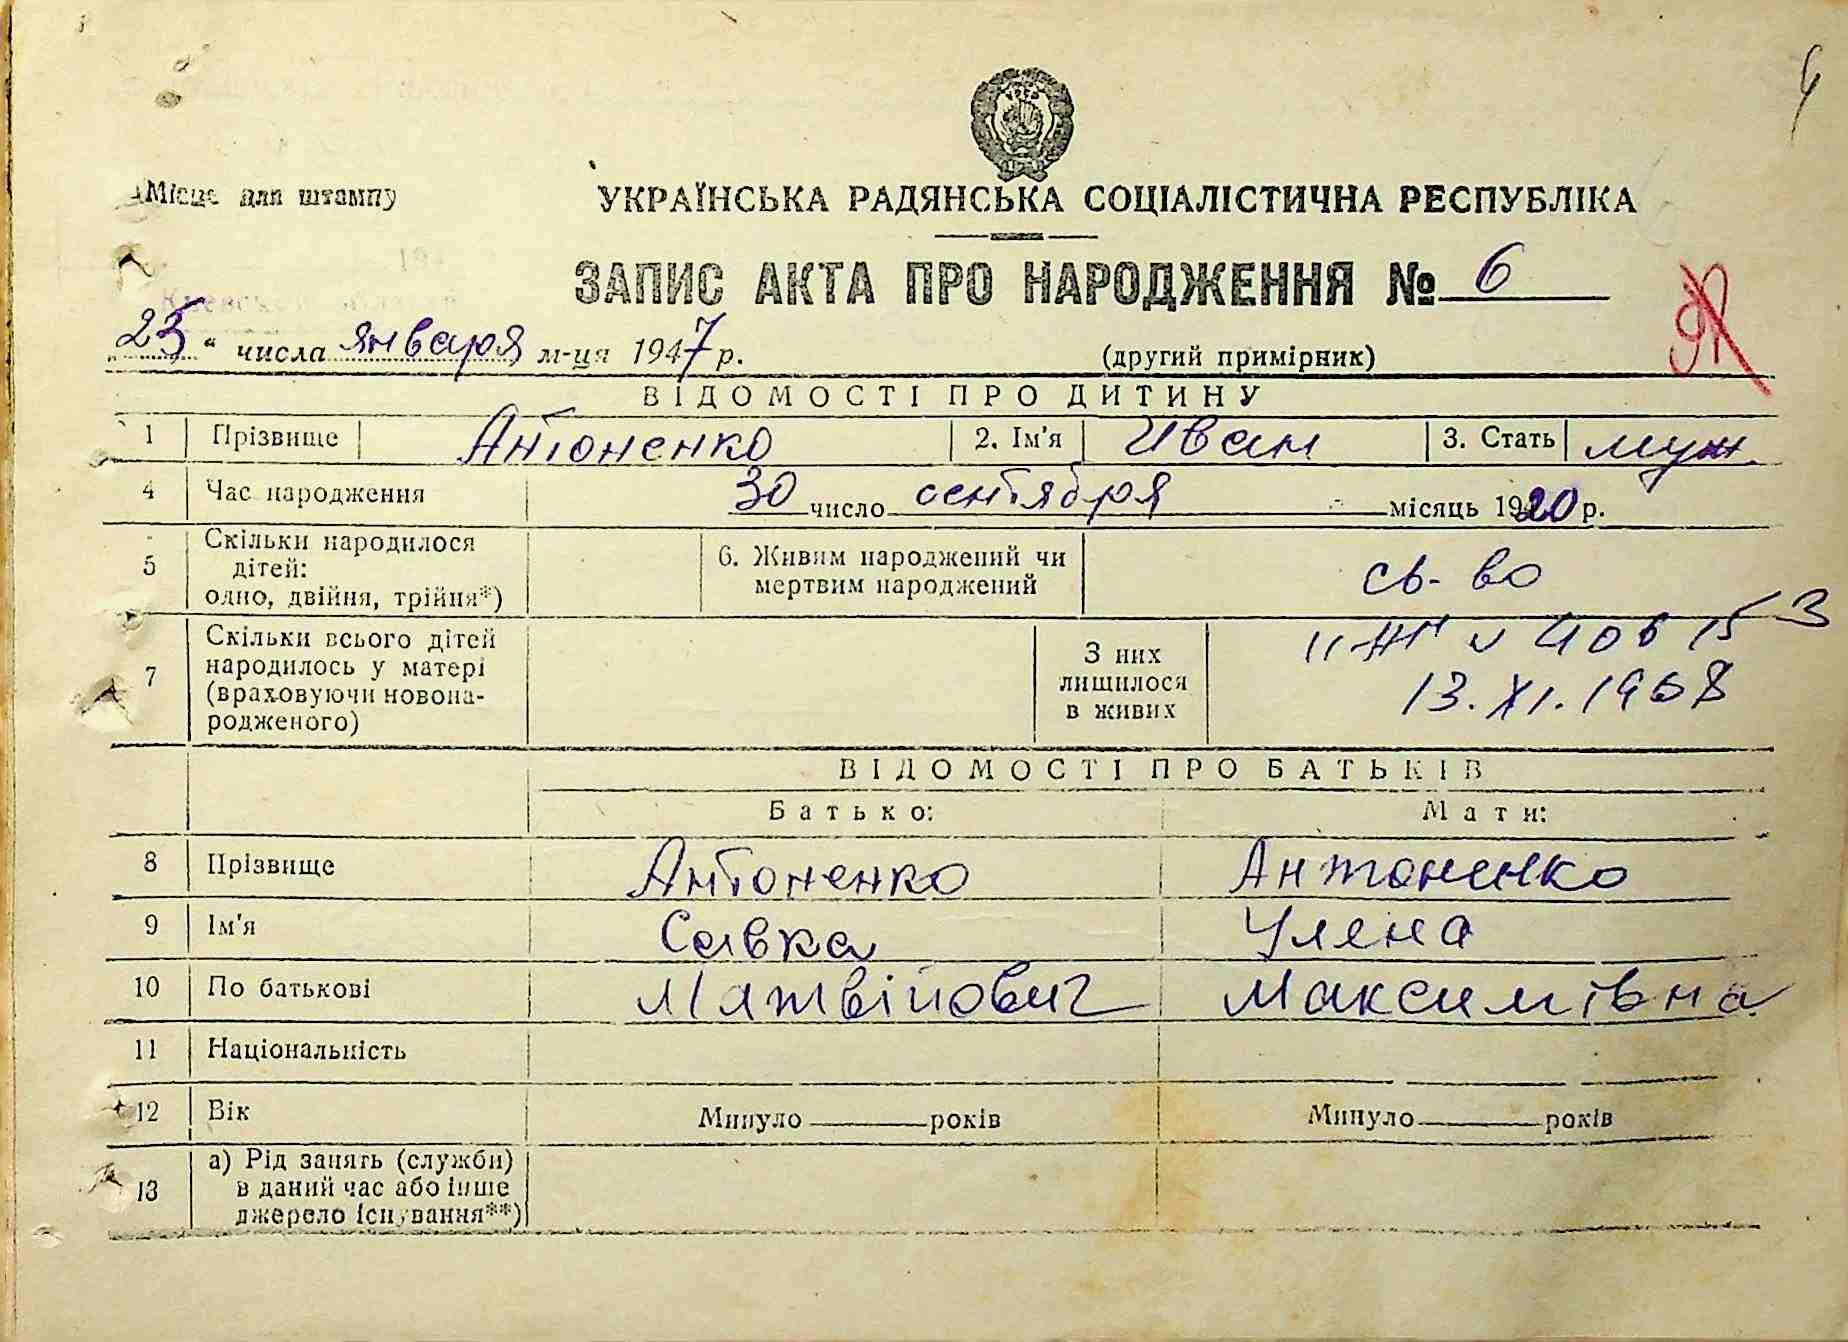 4
Місце для штампу
УКРАЇНСЬКА РАДЯНСЬКА СОЦІАЛІСТИЧНА РЕСПУБЛІКА
ЗАПИС АКТА ПРО НАРОДЖЕННЯ № 6
„25“ числа января м-ця 1947 р.
(другий примірник)
ВІДОМОСТІ ПРО ДИТИНУ
1 Прізвище Антоненко 2. Ім'я Иван 3. Стать муж.
4 Час народження 30 число сентября місяць 1920 р.
5 Скільки народилося дітей: одно, двійня, трійня*) 6. Живим народжений чи мертвим народжений св-во
7 Скільки всього дітей народилось у матері (враховуючи новонародженого) З них лишилося в живих
13.XI.1968
ВІДОМОСТІ ПРО БАТЬКІВ
Батько: Мати:
8 Прізвище Антоненко Антоненко
9 Ім'я Савка Уляна
10 По батькові Матвійович Максимівна
11 Національність
12 Вік Минуло років Минуло років
13 а) Рід занять (служби) в даний час або інше джерело існування**)